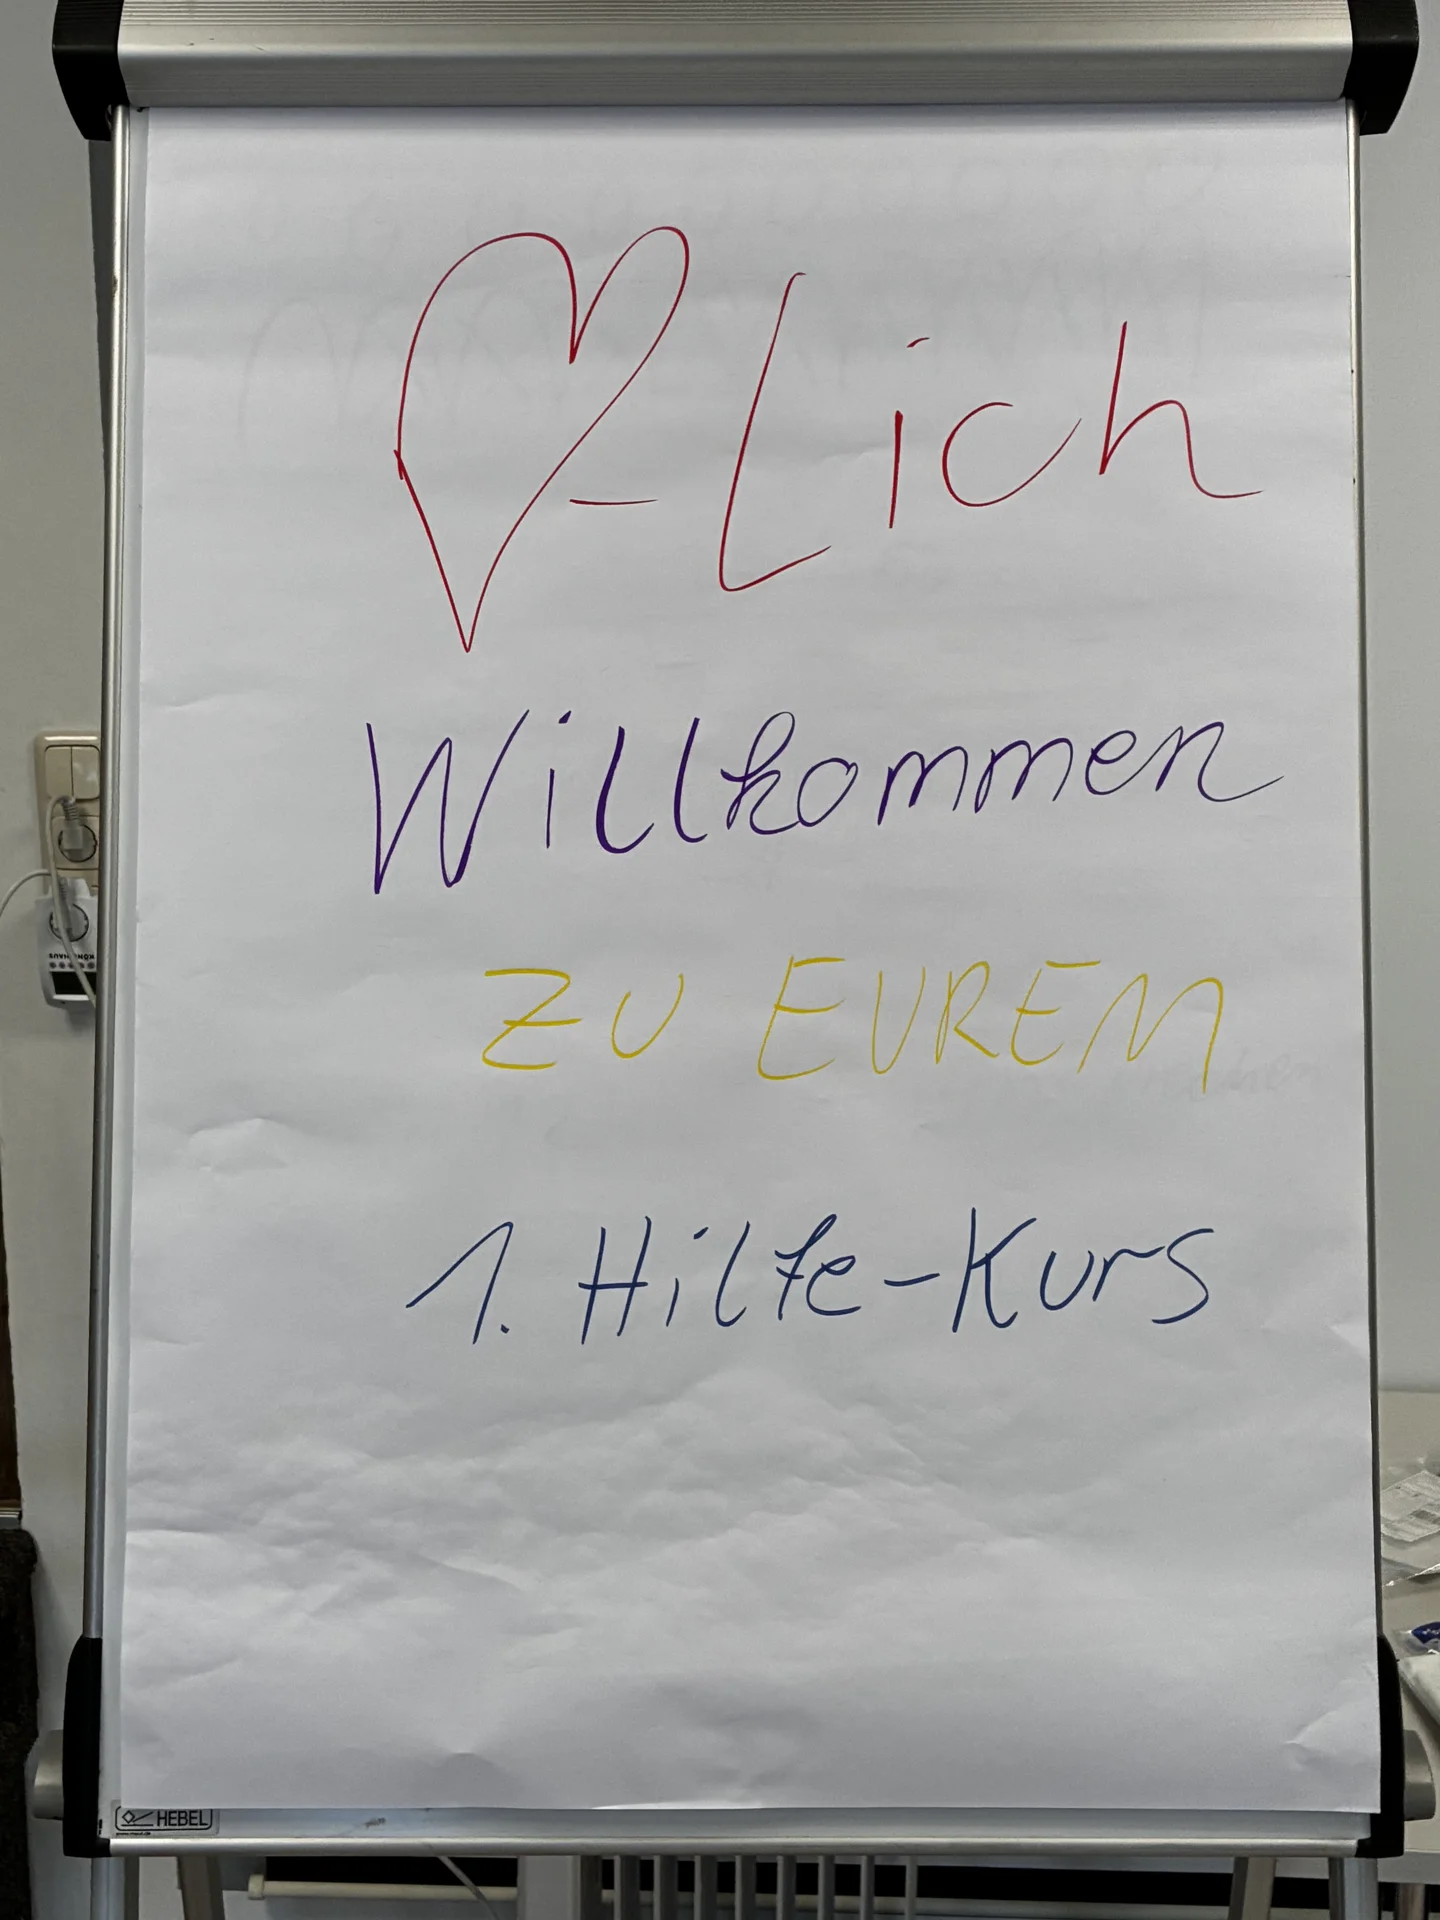 ♡-Lich
Willkommen
ZU EUREM
1. Hilfe-Kurs
HEBEL